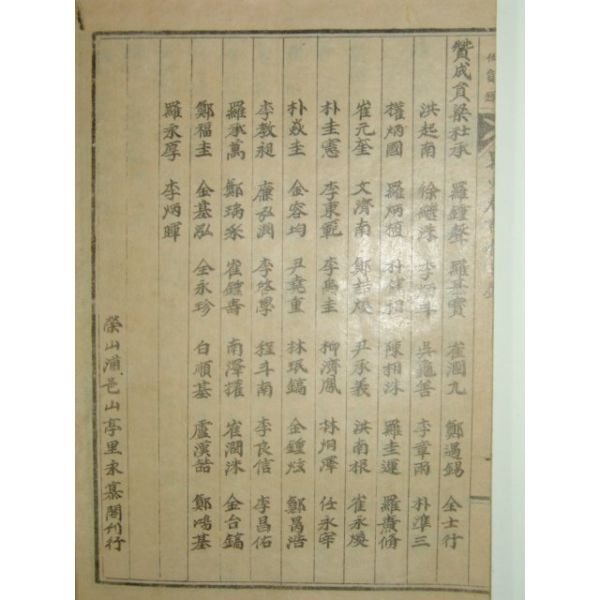 贊成員 梁社承 羅鍾聲 羅基寶 崔潤九 鄭遇錫 金士行
洪起南 徐繼洙 李炳斗 吳龜善 李章雨 朴準三
權炳國 羅炳植 朴 相 陳相洙 羅圭運 羅燾脩
崔元奎 文濟南 鄭喆煥 尹永義 洪南根 崔永煥
朴圭憲 李東範 李禹圭 柳濟鳳 林炯澤 任永宰
朴炎圭 金容均 尹堯重 林珉鎬 金鍾炫 鄭昌浩
李敎昶 廉弘淵 李啓學 程斗南 李良信 李昌佑
羅承萬 鄭瑞承 崔鍾壽 南澤權 崔潤洙 金台鎬
鄭福圭 金基泓 全永珍 白順基 盧漢喆 鄭鴻基
羅永厚 李炳暉
榮山浦邑山亭里永慕閣刊行